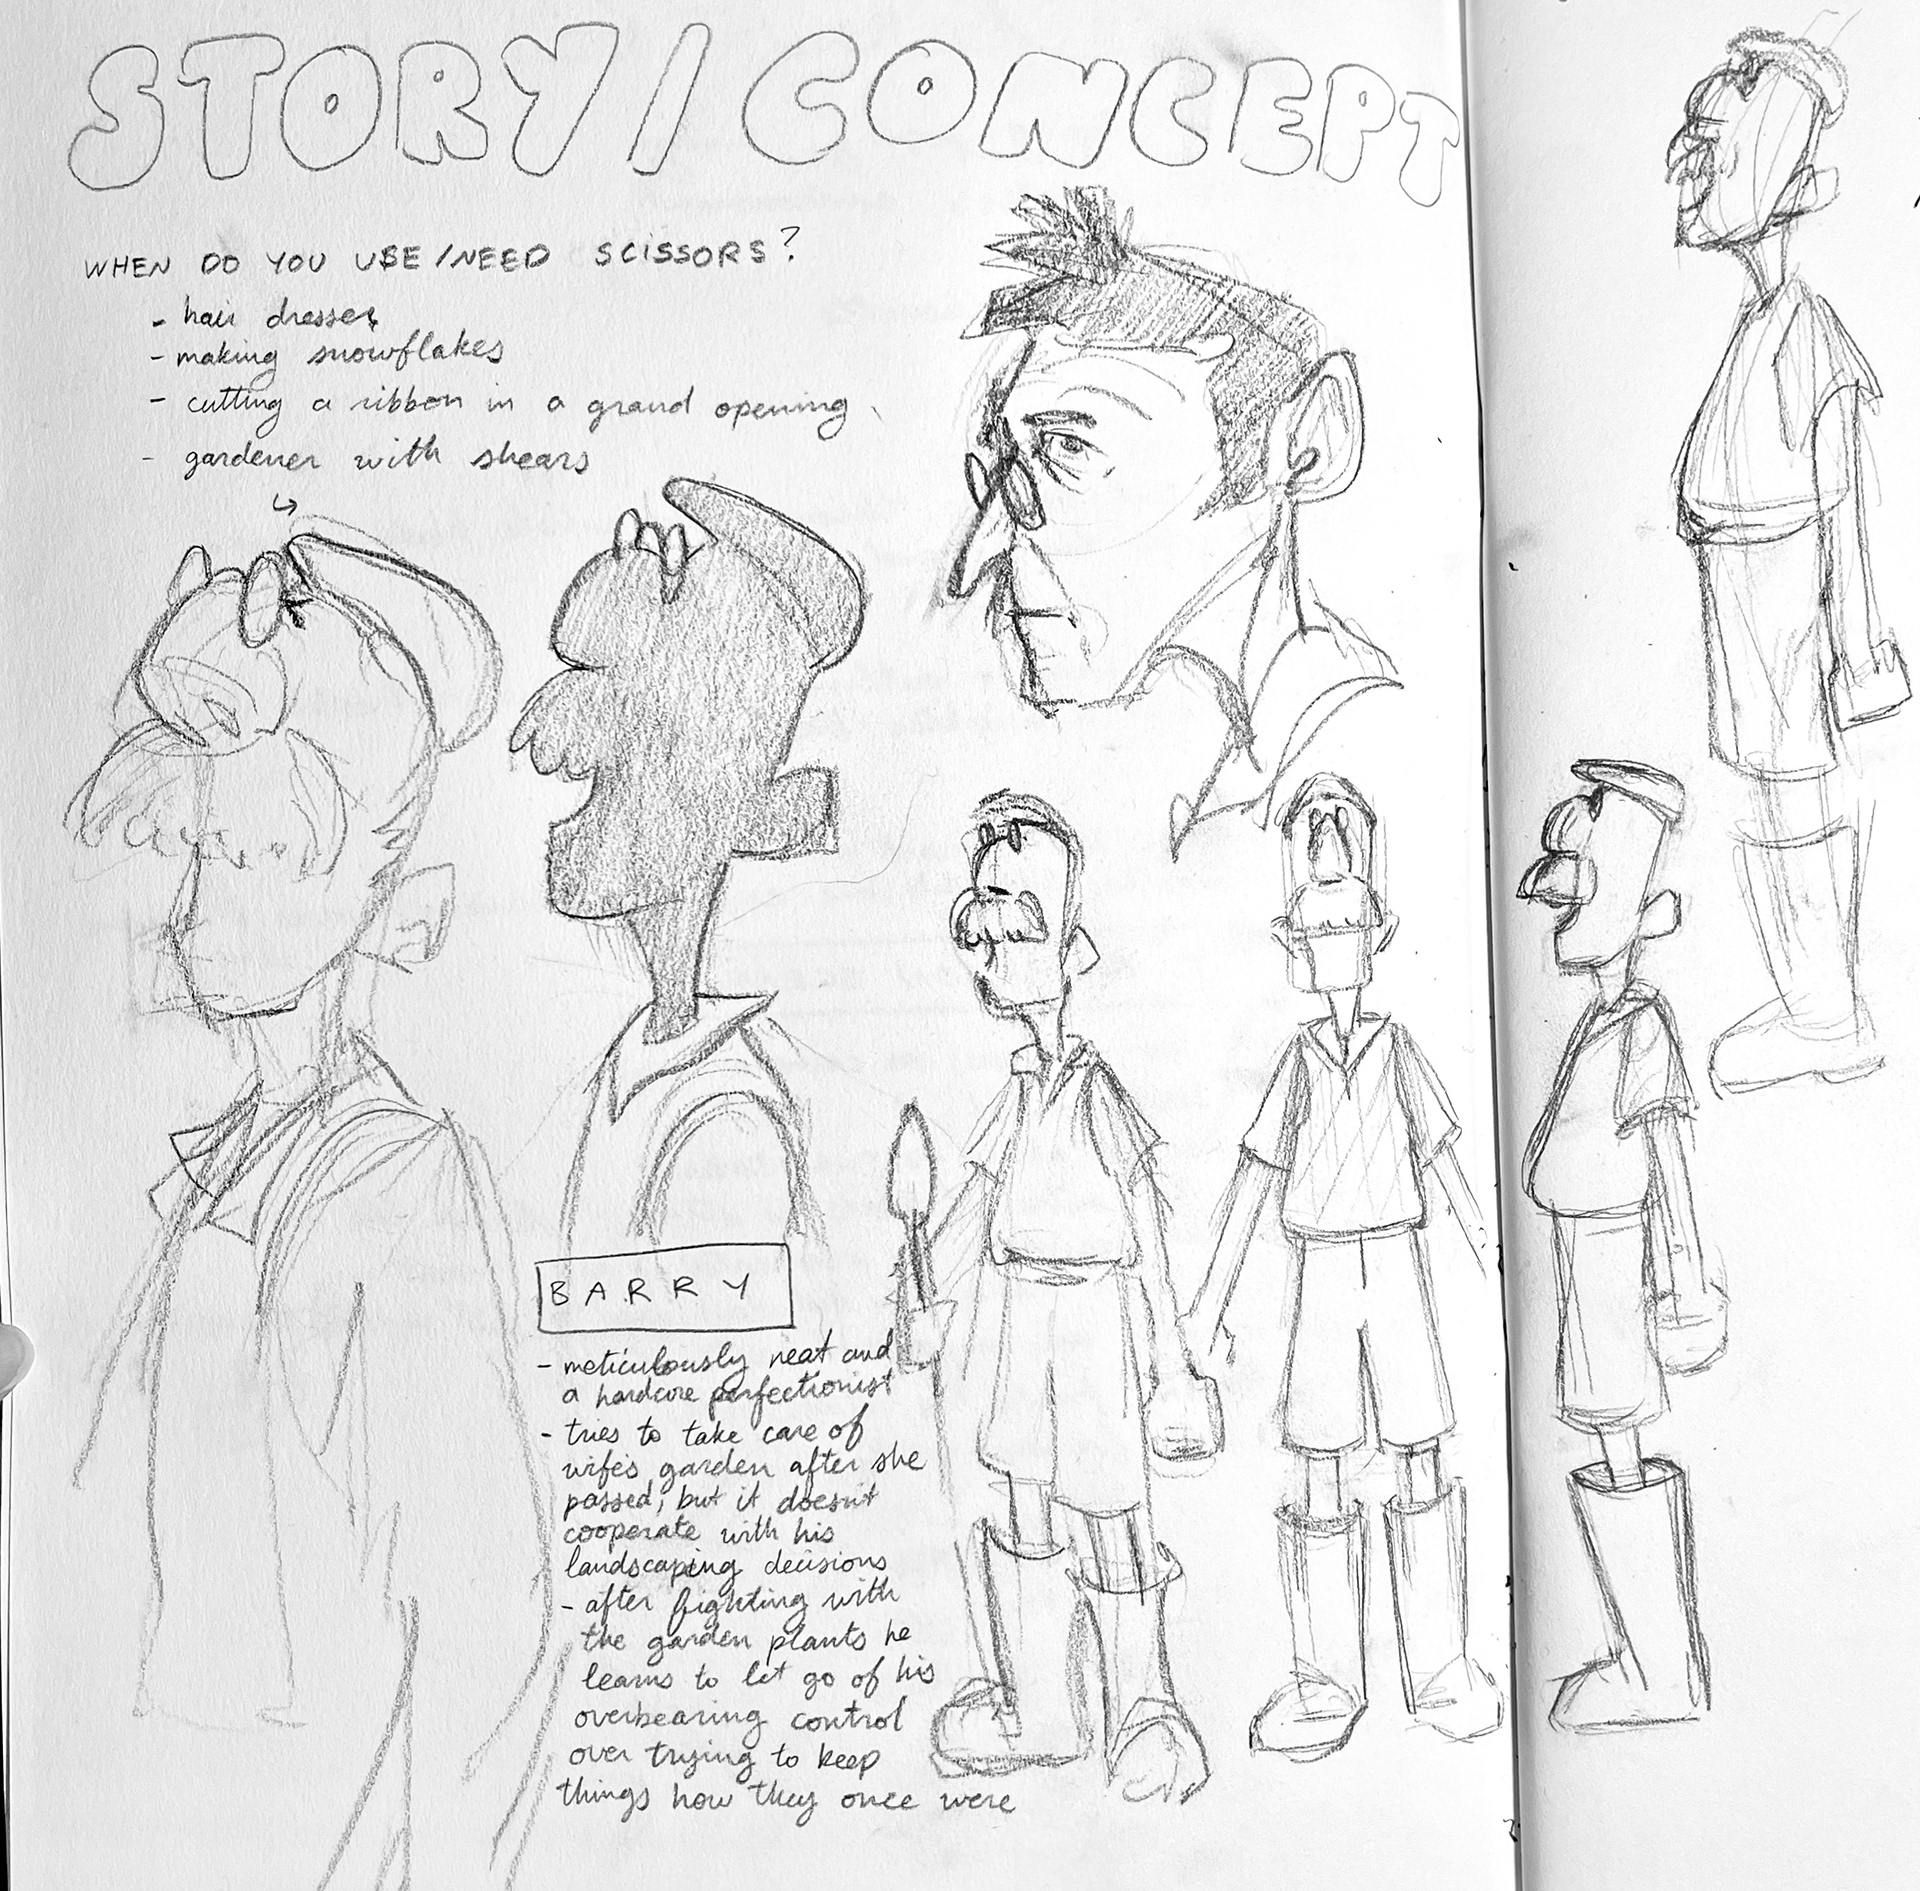 STORY / CONCEPT
WHEN DO YOU USE/NEED SCISSORS?
- hair dresser
- making snowflakes
- cutting a ribbon in a grand opening
- gardener with shears
BARRY
- meticulously neat and
a hardcore perfectionist
- tries to take care of
wife's garden after she
passed, but it doesn't
cooperate with his
landscaping decisions
- after fighting with
the garden plants he
learns to let go of his
overbearing control
over trying to keep
things how they once were